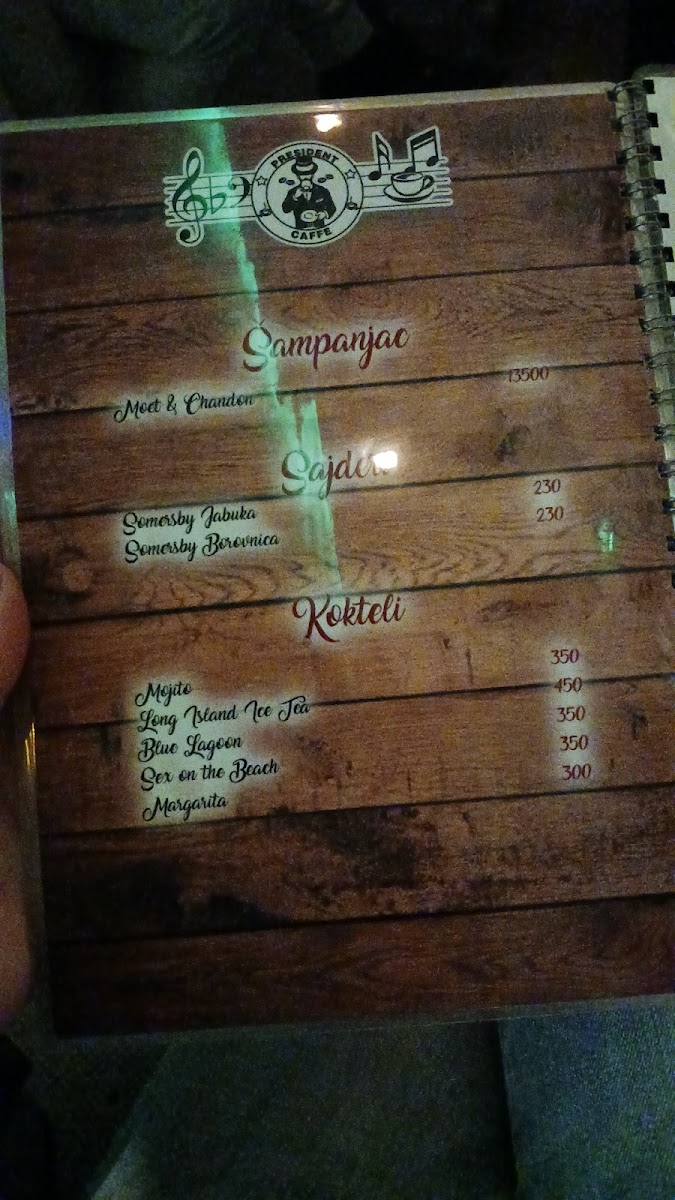 PRESIDENT
CAFFE
Šampanjac
Moet & Chandon 13500
Somersby Jabuka 230
Somersby Borovnica 230
Kokteli
Mojito 350
Long Island Ice Tea 450
Blue Lagoon 350
Sex on the Beach 350
Margarita 300